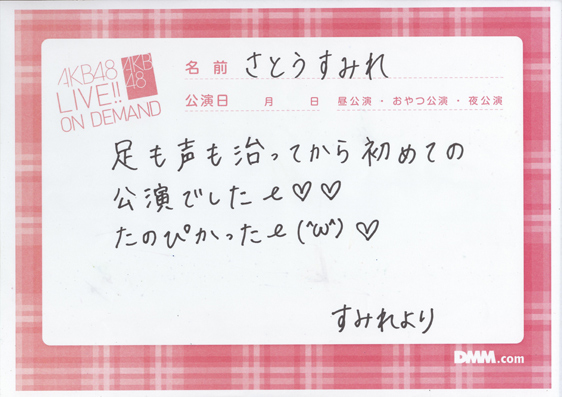 AKB48
LIVE!!
ON DEMAND
AKB
48
名前 さとうすみれ
公演日 月 日 昼公演・おやつ公演・夜公演
足も声も治ってから初めての
公演でしたe♡♡
たのぴかったe(^ω^)♡
すみれより
DMM.com